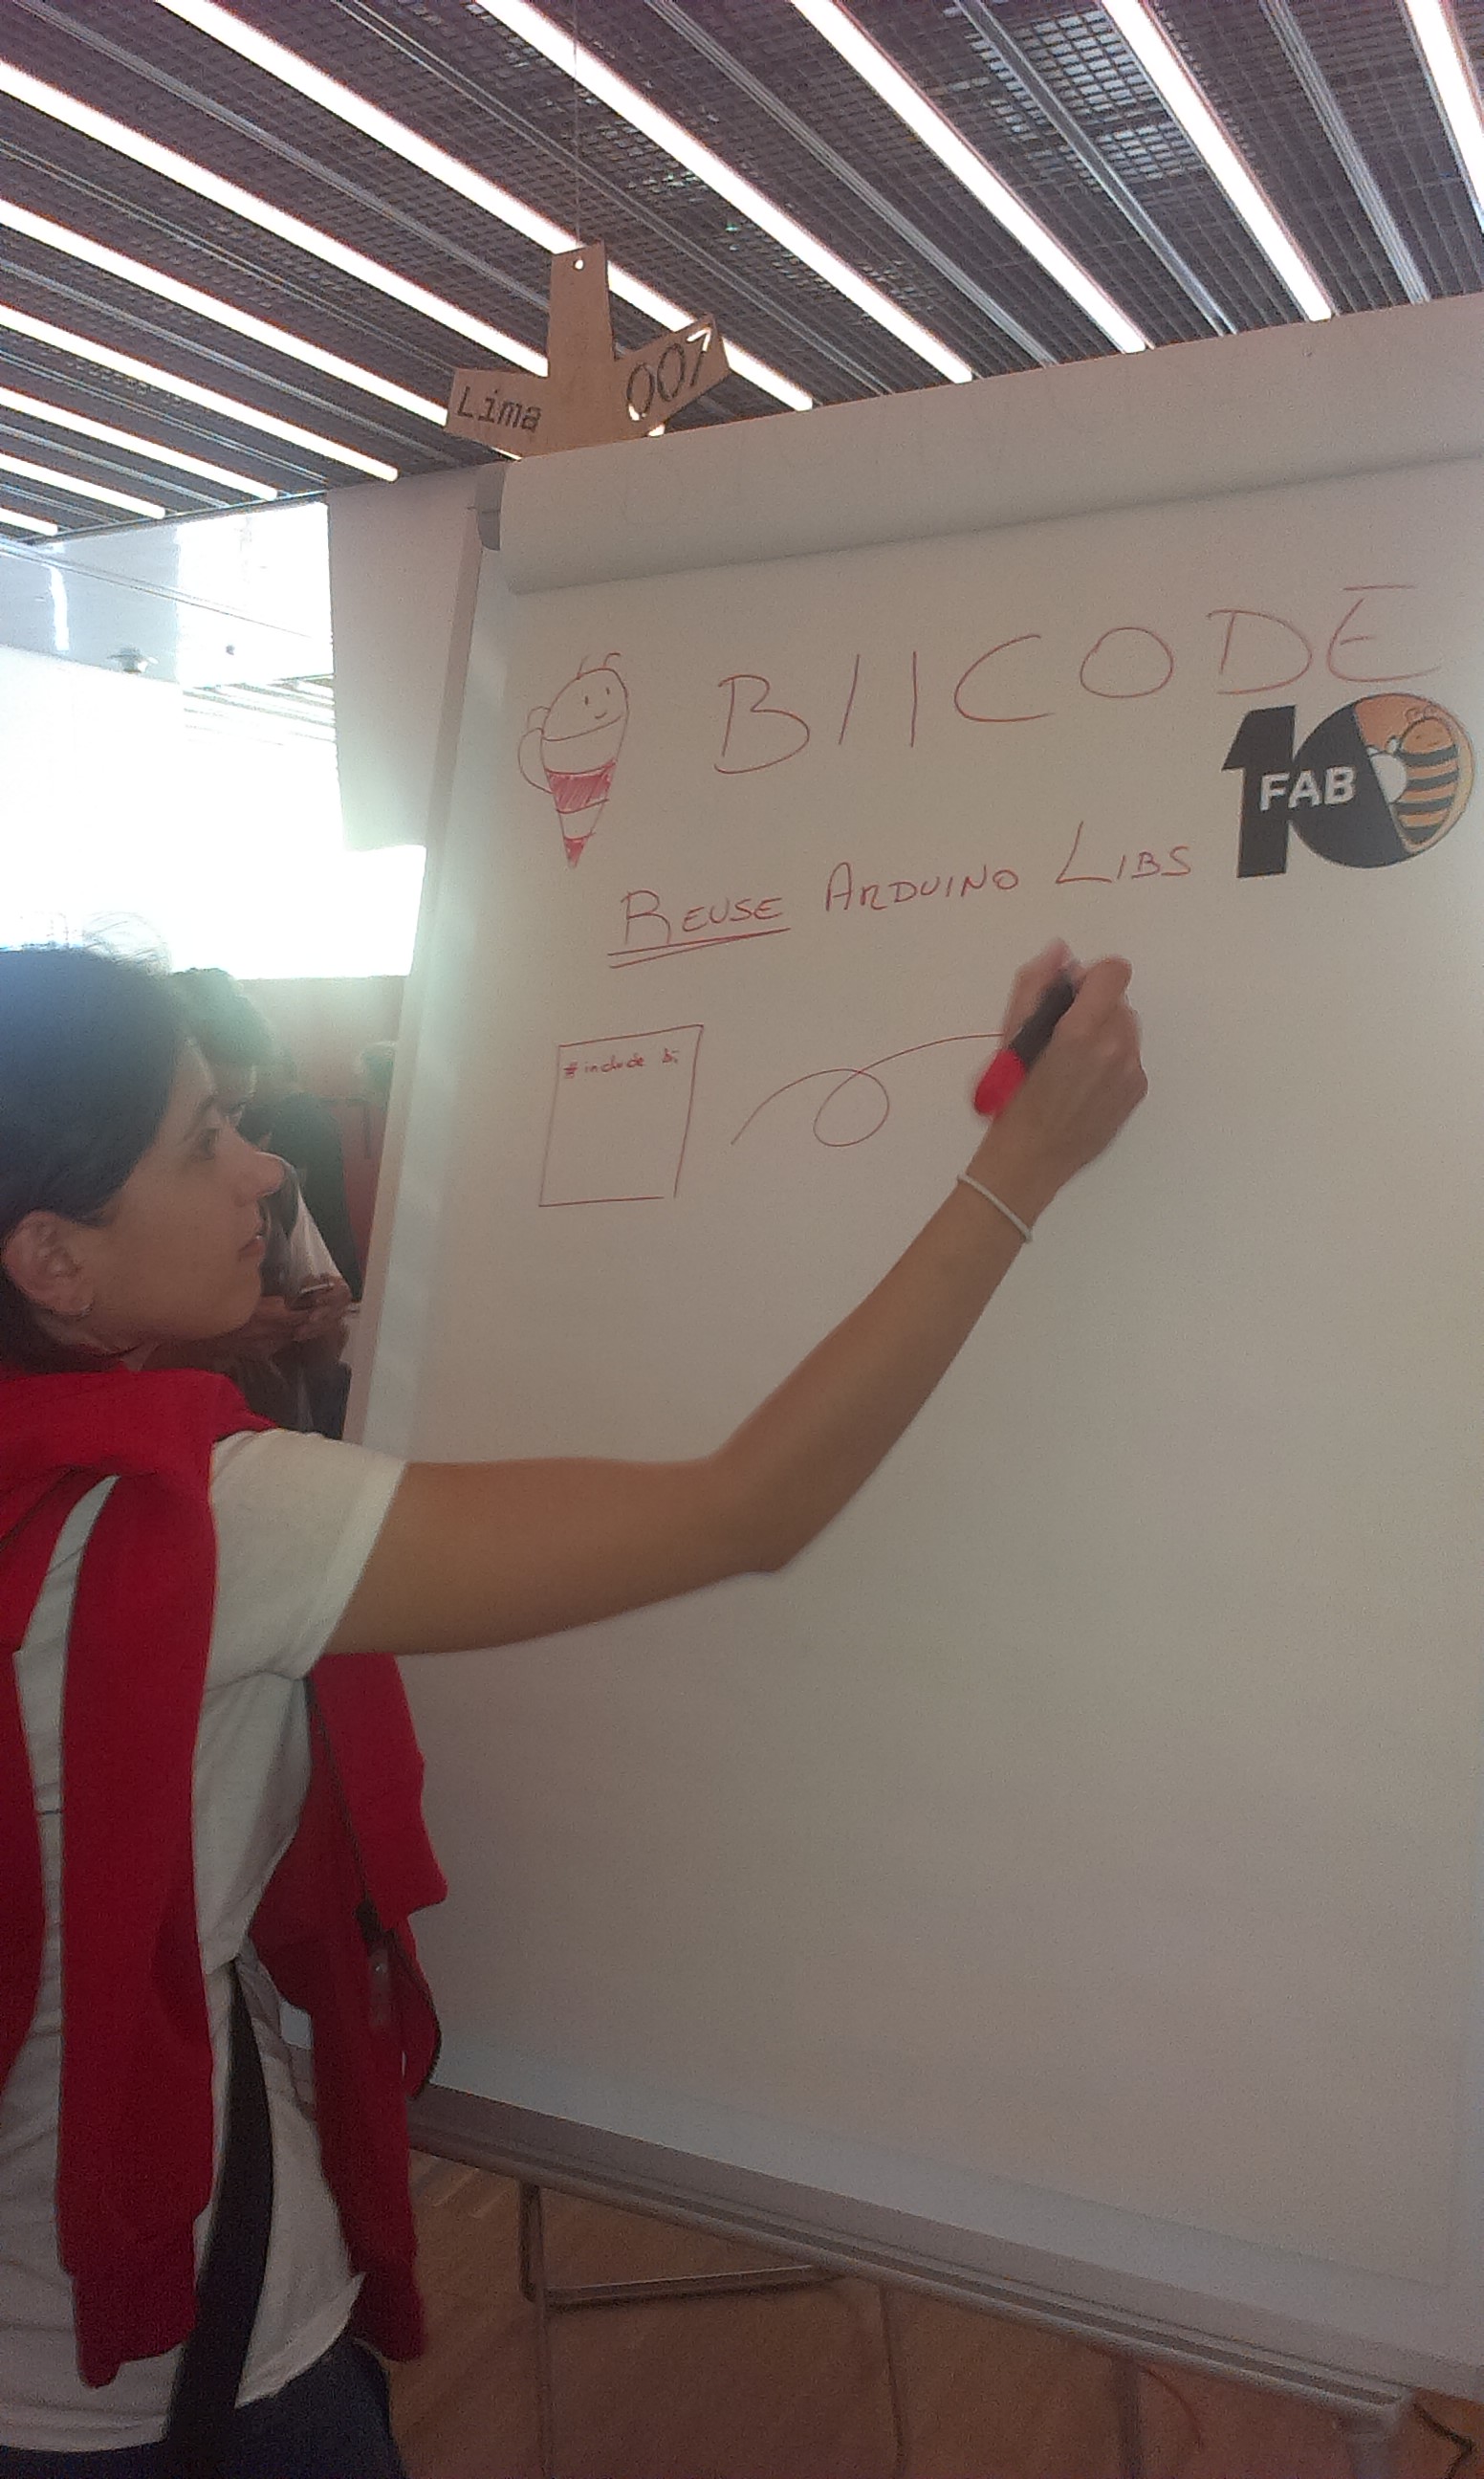 Lima 007
BIICODE
10 FAB
REUSE ARDUINO LIBS
#include bii